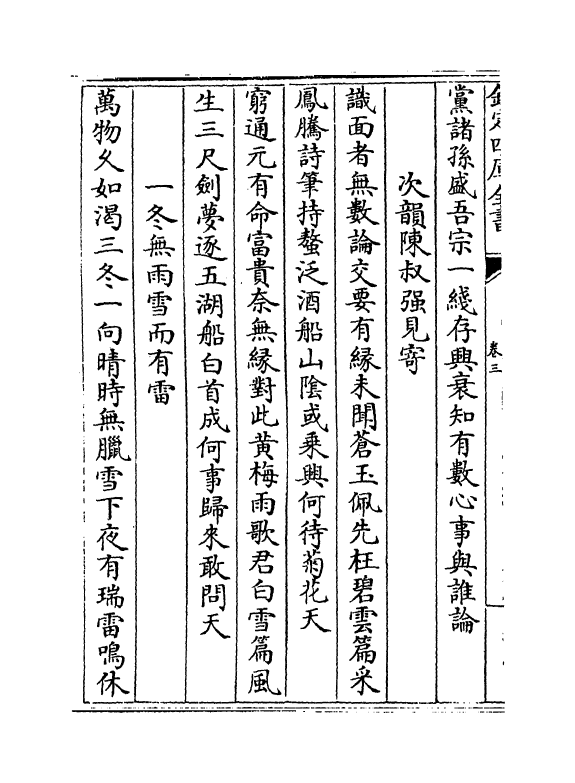 欽定四庫全書
卷三
黨諸孫盛吾宗一綫存興衰知有數心事與誰論
次韻陳叔强見寄
識面者無數論交要有緣未聞蒼玉佩先枉碧雲篇采
鳳騰詩筆持螯泛酒船山陰或乘興何待菊花天
窮通元有命富貴奈無緣對此黃梅雨歌君白雪篇風
生三尺劍夢逐五湖船白首成何事歸來敢問天
一冬無雨雪而有雷
萬物久如渴三冬一向晴時無臘雪下夜有瑞雷鳴休